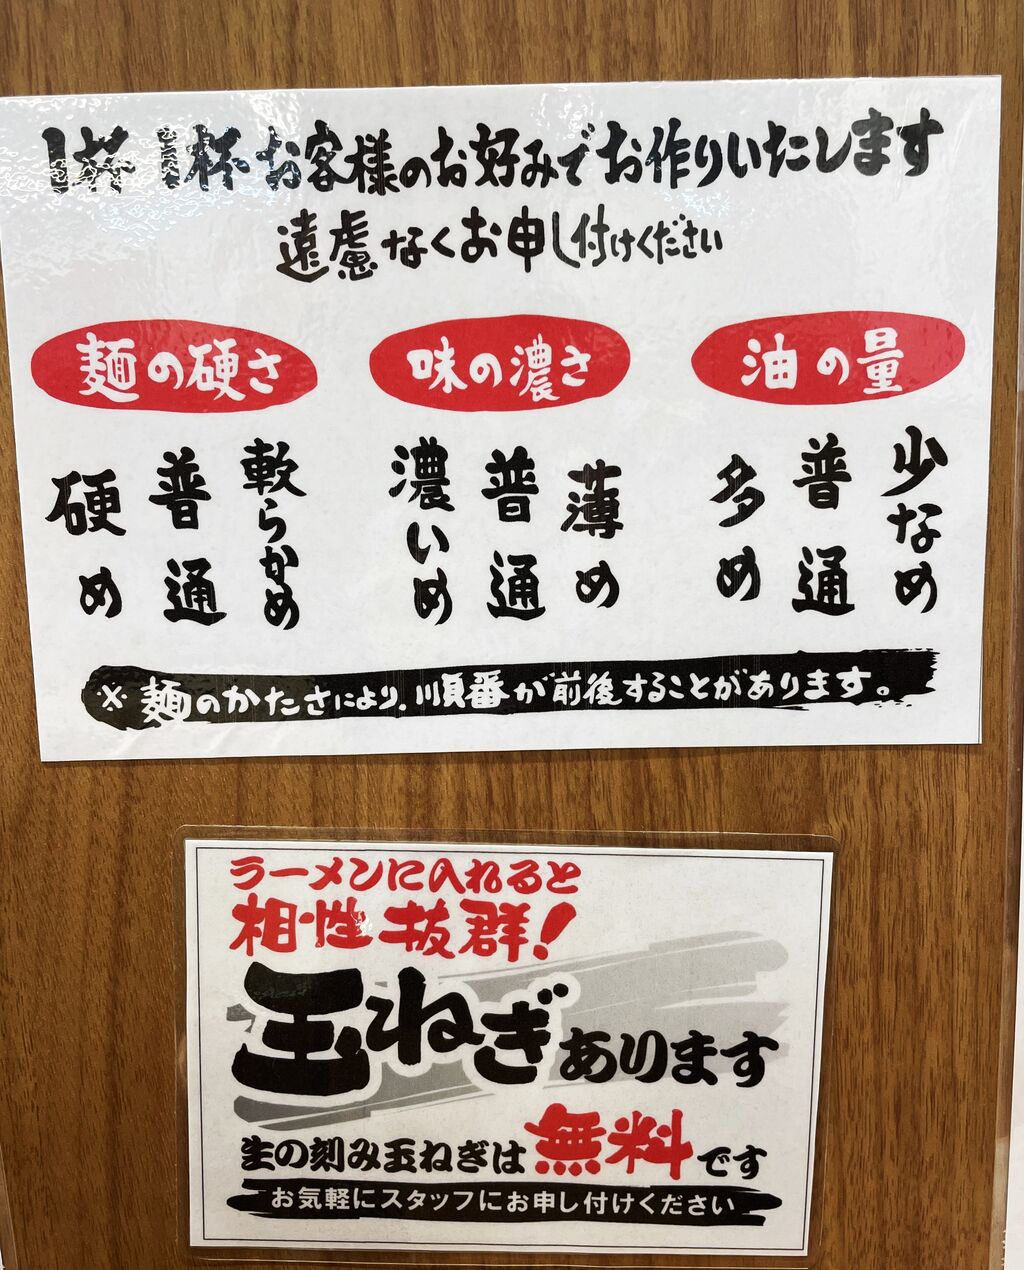 1杯1杯お客様のお好みでお作りいたします
遠慮なくお申し付けください
麺の硬さ
硬め
普通
軟らかめ
味の濃さ
濃いめ
普通
薄め
油の量
多め
普通
少なめ
※麺のかたさにより、順番が前後することがあります。
ラーメンに入れると
相性抜群!
玉ねぎあります
生の刻み玉ねぎは無料です
お気軽にスタッフにお申し付けください